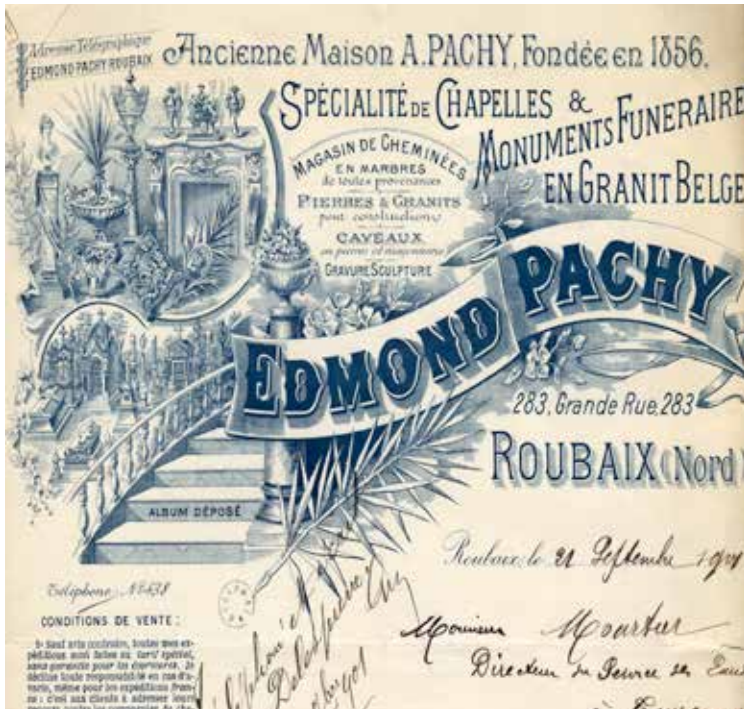 Adresse Télégraphique
EDMOND-PACHY-ROUBAIX
Ancienne Maison A. PACHY, Fondée en 1856.
SPÉCIALITÉ DE CHAPELLES &
MONUMENTS FUNERAIRE
EN GRANIT BELGE
MAGASIN DE CHEMINÉES
EN MARBRES
de toutes provenances
PIERRES & GRANITS
pour constructions
CAVEAUX
en pierres et maçonnerie
GRAVURE SCULPTURE
EDMOND PACHY
283, Grande Rue, 283
ROUBAIX (Nord)
ALBUM DÉPOSÉ
Roubaix, le 21 Septembre 1901
Téléphone: No 638
CONDITIONS DE VENTE :
Sauf avis contraire, toutes mes ex-
péditions sont faites au tarif spécial,
sans garantie pour les
décline toute responsabilité en cas d'a-
varie, même pour les expéditions fran-
co ; c'est aux clients à adresser leurs
Monsieur Mourtier
Directeur du Service des Eaux
à